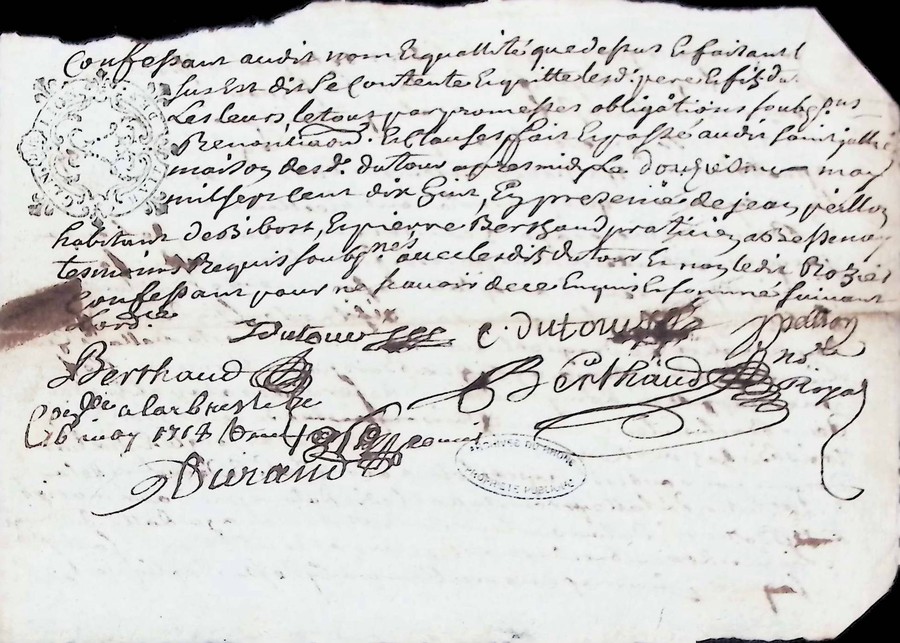 Confessant audit nom Et quallité que dessus En faisant
sus Est dit se Contente Et quitte lesd. pere Et fis du
Les leurs le tout par promesses obligations soubz.ns
Renontiaon. Et Clauses fait Et passé audit saint
maison desd. dutour apres midy Le douzieme may
mil sept cent dix huit, En presence de jean peillon
habitant de Bibost, Et pierre Berthaud praticien
tesmoins Requis soubz.nes avec lesdits dutour Et non ledit
Confessant pour ne scavoir de ce Enquis Et sommé suivant
Lord.ce
Dutour C. Dutour Peillon
Berthaud Berthaud no.re
Royal
Con.lle a larbresle le
may 1718
Durand
ARCHIVES DU RHONE
PROPRIÉTÉ PUBLIQUE